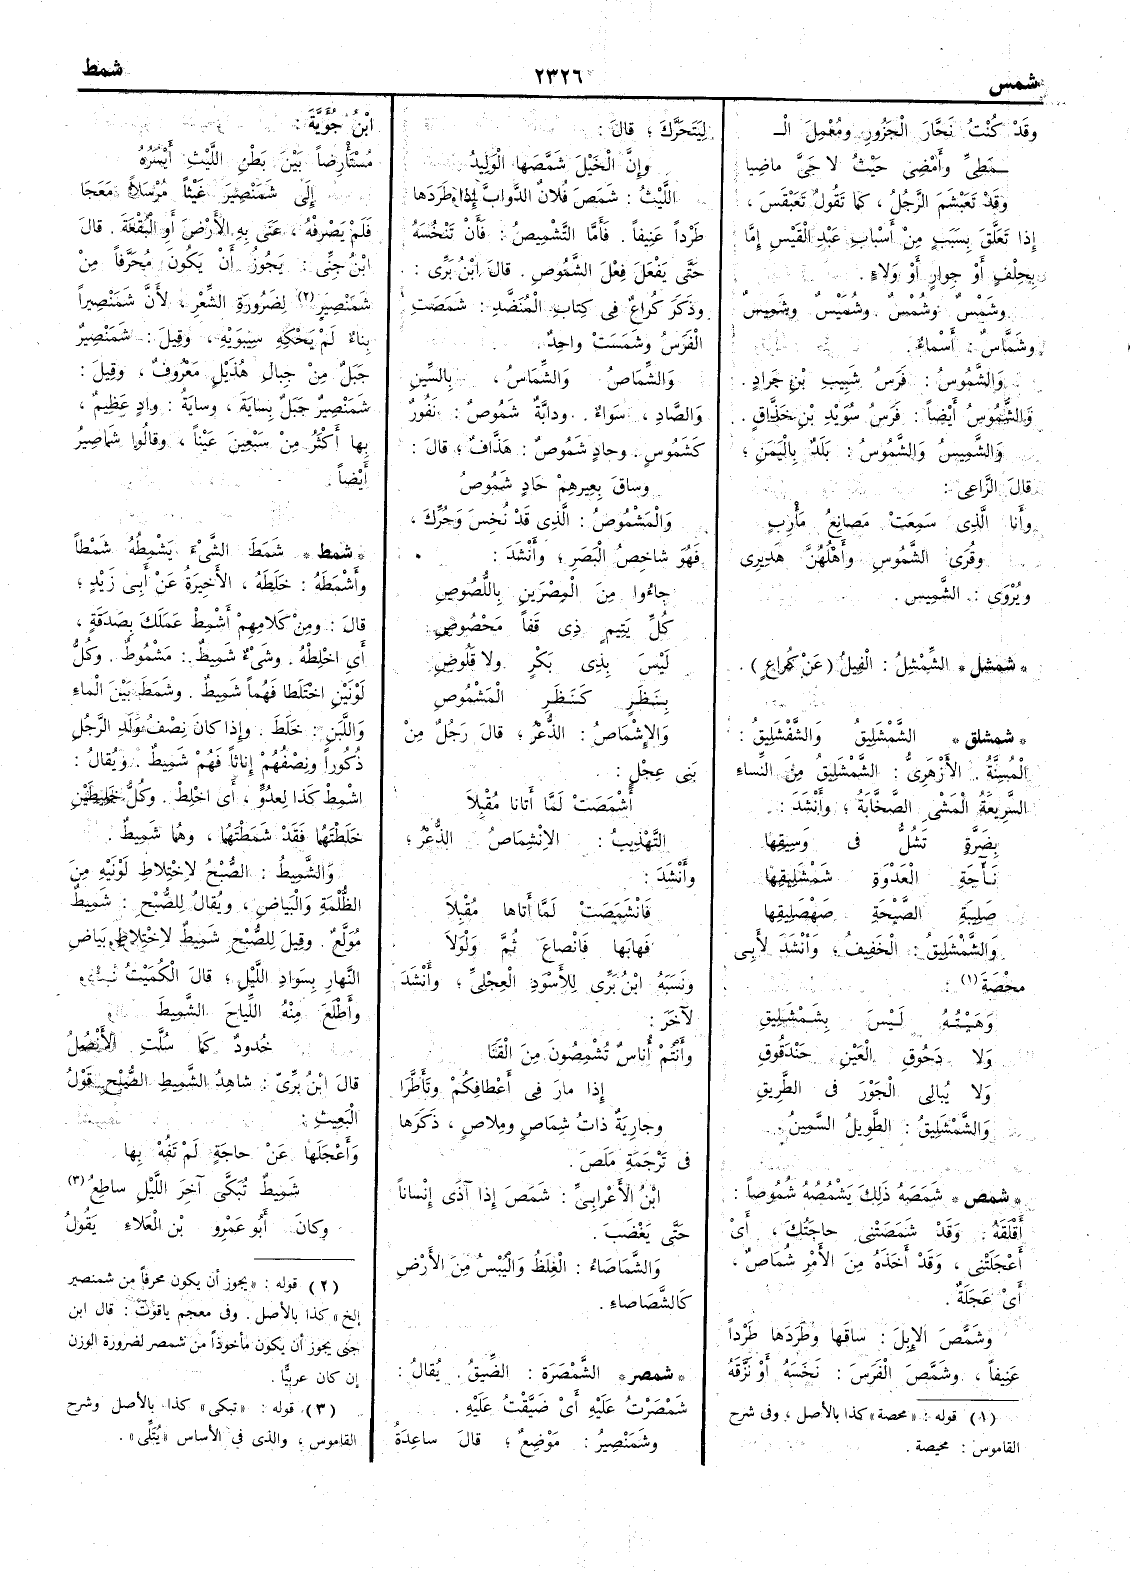 شمس
٢٣٢٦
شمط
وقَدْ كُنْتُ نَحَّارَ الْجَزُورِ ومُعْمِلَ الْـ
ـمَطِىِّ وأَمْضِى حَيْثُ لا حَىَّ ماضِيا
وقَدْ تَعَبْشَمَ الرَّجُلُ ، كَما تَقُولُ تَعَبْقَسَ ،
إِذا تَعَلَّقَ بِسَبَبٍ مِنْ أَسْبابِ عَبْدِ الْقَيْسِ إِمَّا
بِحِلْفٍ أَوْ جِوارٍ أَوْ وَلاءٍ .
وشَمْسٌ وشُمْسٌ وشُمَيْسٌ وشَمِيسٌ
وشَمَّاسٌ : أَسْماءٌ .
وَالشَّمُوسُ : فَرَسُ شَبِيبِ بْنِ جَرادٍ .
وَالشَّمُوسُ أَيْضاً : فَرَسُ سُوَيْدِ بْنِ خَذَّاقٍ .
وَالشَّمِيسُ وَالشَّمُوسُ : بَلَدٌ بِالْيَمَنِ ؛
قالَ الرَّاعِى :
وأَنا الَّذِى سَمِعَتْ مَصانِعُ مَأْرِبٍ
وقُرَى الشَّمُوسِ وأَهْلُهُنَّ هَدِيرِى
ويُرْوَى : الشَّمِيسِ .
* شمشل * الشِّمْشِلُ : الْفِيلُ (عَنْ كُراعٍ) .
* شمشلق * الشَّمْشَلِيقُ وَالشَّفْشَلِيقُ :
الْمُسِنَّةُ . الأَزْهَرِىُّ : الشَّمْشَلِيقُ مِنَ النِّساءِ
السَّرِيعَةُ الْمَشْىِ الصَّخَّابَةُ ؛ وأَنْشَدَ :
بِضَرَّةٍ تَشُلُّ فى وَسِيقِها
نَأّجَةِ الْعَدْوَةِ شَمْشَلِيقِها
صَلِيبَةِ الصَّيْحَةِ صَهْصَلِيقِها
وَالشَّمْشَلِيقُ : الْخَفِيفُ ؛ وأَنْشَدَ لأَبِى
مِحْصَةَ (١) :
وَهَبْتُهُ لَيْسَ بِشَمْشَلِيقِ
وَلا دَحُوقِ الْعَيْنِ حَنْدَقُوقِ
وَلا يُبالِى الْجَوْرَ فى الطَّرِيقِ
وَالشَّمْشَلِيقُ : الطَّوِيلُ السَّمِينُ .
* شمص * شَمَصَهُ ذَلِكَ يَشْمُصُهُ شُمُوصاً :
أَقْلَقَهُ . وَقَدْ شَمَصَتْنِى حاجَتُكَ ، أَىْ
أَعْجَلَتْنِى ، وَقَدْ أَخَذَهُ مِنَ الأَمْرِ شُماصٌ ،
أَىْ عَجَلَةٌ .
وشَمَّصَ الإِبِلَ : ساقَها وطَرَدَها طَرْداً
عَنِيفاً ، وشَمَّصَ الْفَرَسَ : نَخَسَهُ أَوْ نَزَّقَهُ
(١) قوله : «محصة» كذا بالأصل ، وفى شرح
القاموس : محيصة .
لِيَتَحَرَّكَ ؛ قالَ :
وإِنَّ الْخَيْلَ شَمَّصَها الْوَلِيدُ
اللَّيْثُ : شَمَصَ فُلانٌ الدَّوابَّ إِذا طَرَدَها
طَرْداً عَنِيفاً . فَأَمَّا التَّشْمِيصُ : فَأَنْ تَنْخُسَهُ
حَتَّى يَفْعَلَ فِعْلَ الشَّمُوصِ . قالَ ابْنُ بَرِّى :
وذَكَرَ كُراعٌ فى كِتابِ الْمُنَضَّدِ : شَمَصَتِ
الْفَرَسُ وشَمَسَتْ واحِدٌ .
وَالشِّماصُ وَالشِّماسُ ، بِالسِّينِ
وَالصَّادِ ، سَواءٌ . ودابَّةٌ شَمُوصٌ : نَفُورٌ
كَشَمُوسٍ . وحادٍ شَمُوصٌ : هَذَّافٌ ؛ قالَ :
وساقَ بِعِيرِهِمْ حَادٍ شَمُوصُ
وَالْمَشْمُوصُ : الَّذِى قَدْ نُخِسَ وَحُرِّكَ ،
فَهُوَ شاخِصُ الْبَصَرِ ؛ وأَنْشَدَ :
جاءُوا مِنَ الْمِصْرَينِ بِاللُّصُوصِ
كُلِّ يَتِيمٍ ذِى قَفاً مَحْصُوصِ
لَيْسَ بِذِى بَكْرٍ ولا قَلُوصِ
بِنَظَرٍ كَنَظَرِ الْمَشْمُوصِ
وَالإِشْماصُ : الذُّعْرُ ؛ قالَ رَجُلٌ مِنْ
بَنِى عِجْلٍ :
أَشْمَصَتْ لَمَّا أَتانا مُقْبِلاَ
التَّهْذِيبُ : الاِنْشِماصُ الذُّعْرُ ؛
وأَنْشَدَ :
فَانْشَمَصَتْ لَمَّا أَتاها مُقْبِلاَ
فَهابَها فَانْصاعَ ثُمَّ وَلْوَلاَ
ونَسَبَهُ ابْنُ بَرِّى لِلأَسْوَدِ الْعِجْلِىِّ ؛ وأَنْشَدَ
لآخَرَ :
وأَنْتُمْ أُناسٌ تُشْمِصُونَ مِنَ الْقَنَا
إِذا مارَ فى أَعْطافِكُمْ وتَأَطَّرَا
وجارِيَةٌ ذاتُ شِماصٍ ومِلاصٍ ، ذَكَرَها
فى تَرْجَمَةِ مَلَصَ .
ابْنُ الأَعْرابِىِّ : شَمَصَ إِذا آذَى إِنْساناً
حَتَّى يَغْضَبَ .
وَالشَّماصاءُ : الْغِلَظُ وَالْيُبْسُ مِنَ الأَرْضِ
كَالشَّصَاصاءِ .
* شمصر * الشَّمْصَرَةُ : الضِّيقُ . يُقالُ :
شَمْصَرْتُ عَلَيْهِ أَىْ ضَيَّقْتُ عَلَيْهِ .
وشَمَنْصِيرُ : مَوْضِعٌ ؛ قالَ ساعِدَةُ
ابْنُ جُؤَيَّةَ :
مُسْتَأْرِضاً بَيْنَ بَطْنِ اللَّيْثِ أَيْمَنُهُ
إِلَى شَمَنْصِيرَ غَيْثاً مُرْسَلاً مَعَجَا
فَلَمْ يَصْرِفْهُ ، عَنَى بِهِ الأَرْضَ أَوِ الْبُقْعَةَ . قالَ
ابْنُ جِنِّى : يَجُوزُ أَنْ يَكُونَ مُحَرَّفاً مِنْ
شَمَنْصِيرٍ (٢) لِضَرُورَةِ الشِّعْرِ لأَنَّ شَمَنْصِيراً
بِناءٌ لَمْ يَحْكِهِ سِيبَوَيْهِ ، وَقِيلَ : شَمَنْصِيرٌ
جَبَلٌ مِنْ جِبالِ هُذَيْلٍ مَعْرُوفٌ ، وقِيلَ :
شَمَنْصِيرٌ جَبَلٌ بِسايَةَ ، وسايَةُ : وادٍ عَظِيمٌ ،
بِها أَكْثَرُ مِنْ سَبْعِينَ عَيْناً ، وقالُوا شَماصِيرُ
أَيْضاً .
* شمط * شَمَطَ الشَّىْءَ يَشْمِطُهُ شَمْطاً
وأَشْمَطَهُ : خَلَطَهُ ، الأَخِيرَةُ عَنْ أَبِى زَيْدٍ ؛
قالَ : ومِنْ كَلامِهِمْ أَشْمِطْ عَمَلَكَ بِصَدَقَةٍ ،
أَىِ اخْلِطْهُ . وشَىْءٌ شَمِيطٌ : مَشْمُوطٌ . وكُلُّ
لَوْنَيْنِ اخْتَلَطا فَهُما شَمِيطٌ . وشَمَطَ بَيْنَ الْماءِ
وَاللَّبَنِ : خَلَطَ . وإِذا كانَ نِصْفُ وَلَدِ الرَّجُلِ
ذُكُوراً ونِصْفُهُمْ إِناثاً فَهُمْ شَمِيطٌ . ويُقالُ :
اشْمِطْ كَذا لِعدُوٍّ ، أَى اخْلِطْ . وكُلُّ خَلِيطَيْنِ
خَلَطْتَهُما فَقَدْ شَمَطْتَهُما ، وهُما شَمِيطٌ .
وَالشَّمِيطُ : الصُّبْحُ لاِخْتِلاطِ لَوْنَيْهِ مِنَ
الظُّلْمَةِ وَالْبَياضِ ، ويُقالُ لِلصُّبْحِ : شَمِيطٌ
مُوَلَّعٌ . وقِيلَ لِلصُّبْحِ شَمِيطٌ لاِخْتِلاطِ بَياضِ
النَّهارِ بِسَوادِ اللَّيْلِ ؛ قالَ الْكُمَيْتُ
وأَطْلَعَ مِنْهُ اللِّياحَ الشَّمِيطَ
خُدودٌ كَما سُلَّتِ الأَنْصُلُ
قالَ ابْنُ بَرِّىّ : شاهِدُ الشَّمِيطِ الصُّبْحِ قَوْلُ
الْبَعِيثِ :
وَأَعْجَلَها عَنْ حاجَةٍ لَمْ تَفُهْ بِها
شَمِيطٌ تُبَكَّى آخِرَ اللَّيْلِ ساطِعُ (٣)
وكانَ أَبُو عَمْرِو بْنِ الْعَلاءِ يَقُولُ
(٢) قوله : «يجوز أن يكون محرفاً من شمنصير
إلخ» كذا بالأصل . وفى معجم ياقوت : قال ابن
جنى يجوز أن يكون مأخوذاً من شمصر لضرورة الوزن
إن كان عربيًّا .
(٣) قوله : «تبكى» كذا بالأصل وشرح
القاموس ، والذى فى الأساس «يُتَلَّى» .